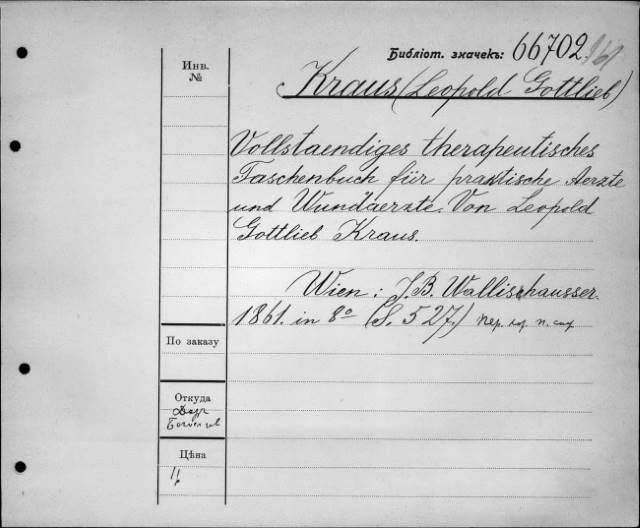 Библіот. значекъ: 66702
Инв.
№
Kraus (Leopold Gottlieb)
Vollstaendiges therapeutisches
Taschenbuch für praktische Aerzte
und Wundaerzte. Von Leopold
Gottlieb Kraus.
Wien: J. B. Wallishausser.
1861. in 8º (S. 527.)
По заказу
Откуда
Даръ
Цѣна